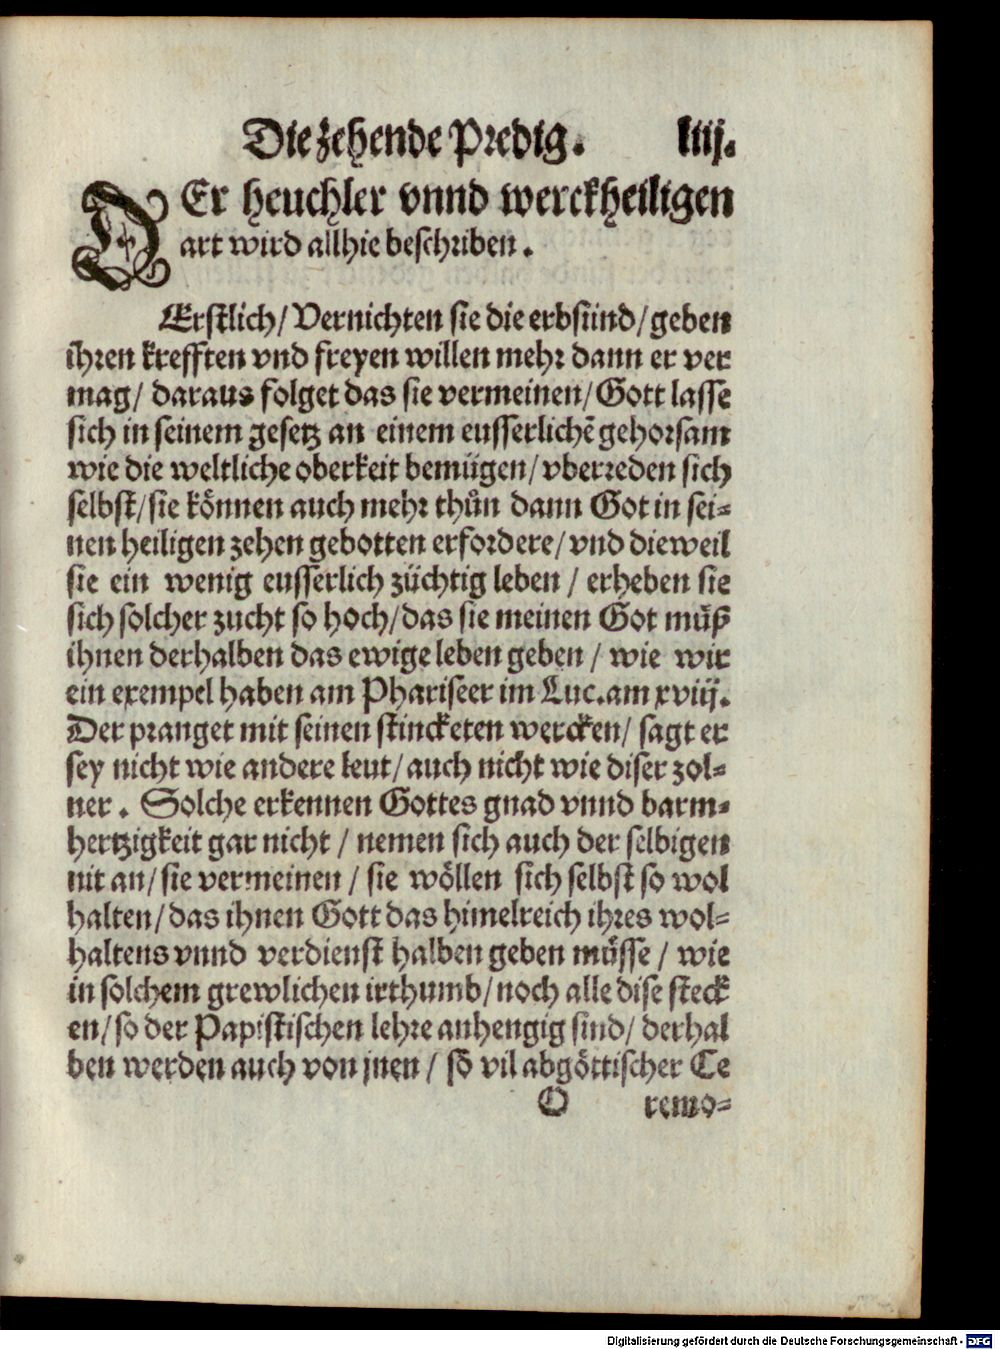 Die zehende Predig. liij.
DEr heuchler vnnd werckheiligen
art wird allhie beschriben.
Erstlich/ Vernichten sie die erbsünd/ geben
ihren krefften vnd freyen willen mehr dann er ver
mag/ daraus folget das sie vermeinen/ Gott lasse
sich in seinem gesetz an einem eusserlichē gehorsam
wie die weltliche oberkeit benügen/ vberreden sich
selbst/ sie können auch mehr thůn dann Got in sei-
nen heiligen zehen gebotten erfordere/ vnd dieweil
sie ein wenig eusserlich züchtig leben / erheben sie
sich solcher zucht so hoch/ das sie meinen Got müß
ihnen derhalben das ewige leben geben / wie wir
ein exempel haben am Phariseer im Luc. am xviij.
Der pranget mit seinen stincketen wercken/ sagt er
sey nicht wie andere leut/ auch nicht wie diser zol-
ner. Solche erkennen Gottes gnad vnnd barm-
hertzigkeit gar nicht / nemen sich auch der selbigen
nit an/ sie vermeinen / sie wöllen sich selbst so wol
halten/ das ihnen Gott das himelreich ihres wol-
haltens vnnd verdienst halben geben müsse / wie
in solchem grewlichen irthumb/ noch alle dise steck
en/ so der Papistischen lehre anhengig sind/ derhal
ben werden auch von jnen / sō vil abgöttischer Ce
O remo-
Digitalisierung gefördert durch die Deutsche Forschungsgemeinschaft - DFG